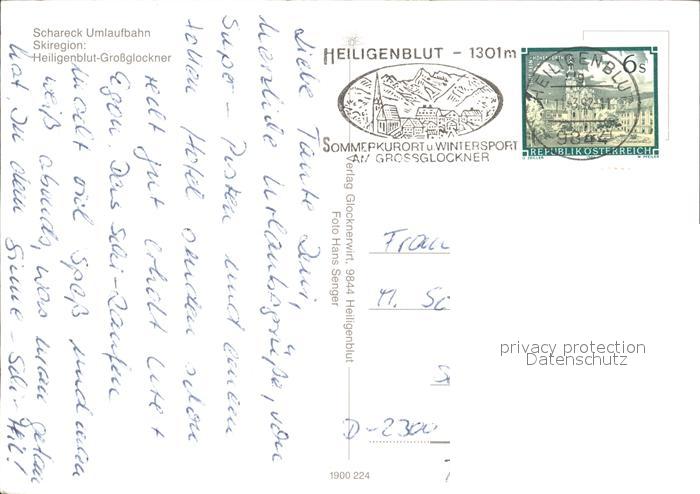 Schareck Umlaufbahn
Skiregion:
Heiligenblut-Großglockner
HEILIGENBLUT - 1301m
SOMMERKURORT u. WINTERSPORT
AM GROSSGLOCKNER
HEILIGENBLUT
9844
6s
REPUBLIK ÖSTERREICH
Liebe Tante
herzliche Urlaubsgrüße, von
super-Pisten und einem
tollen Hotel senden schon
recht gut erholt Ute +
Egon. Das Ski-Laufen
macht viel Spaß und man
weiß abends, was man getan
hat. In dem Sinne - Ski-Heil!
Verlag Glocknerwirt, 9844 Heiligenblut
Foto Hans Senger
Frau
D-2300
1900 224
privacy protection
Datenschutz